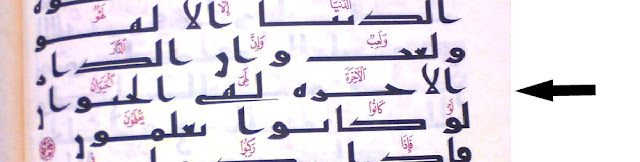 الدُّنْيَا إِلَّا لَهْوٌ
الدنيا الا لهو
وَلَعِبٌ وَإِنَّ الدَّارَ
ولعب وان الدار
الْآخِرَةَ لَهِيَ الْحَيَوَانُ
الاخره لهى الحيوان
لَوْ كَانُوا يَعْلَمُونَ
لو كانوا يعلمون
فَإِذَا رَكِبُوا